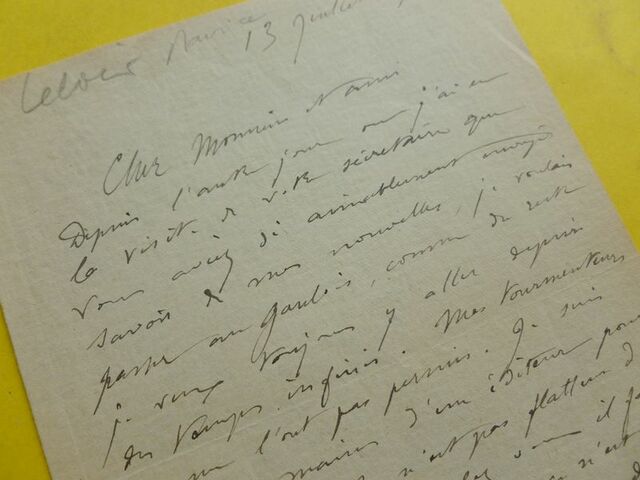 Leloir Maurice
13 juillet
Cher Monsieur et ami
Depuis l'autre jour où j'ai eu
la visite de votre secrétaire que
vous aviez si aimablement envoyé
savoir de mes nouvelles, je voulais
passer au Gaulois, comme du reste
je veux toujours y aller depuis
des temps infinis. Mes tourmenteurs
ne l'ont pas permis. Je suis
mains d'un éditeur pour
n'est pas flatteur
il fa
n'est